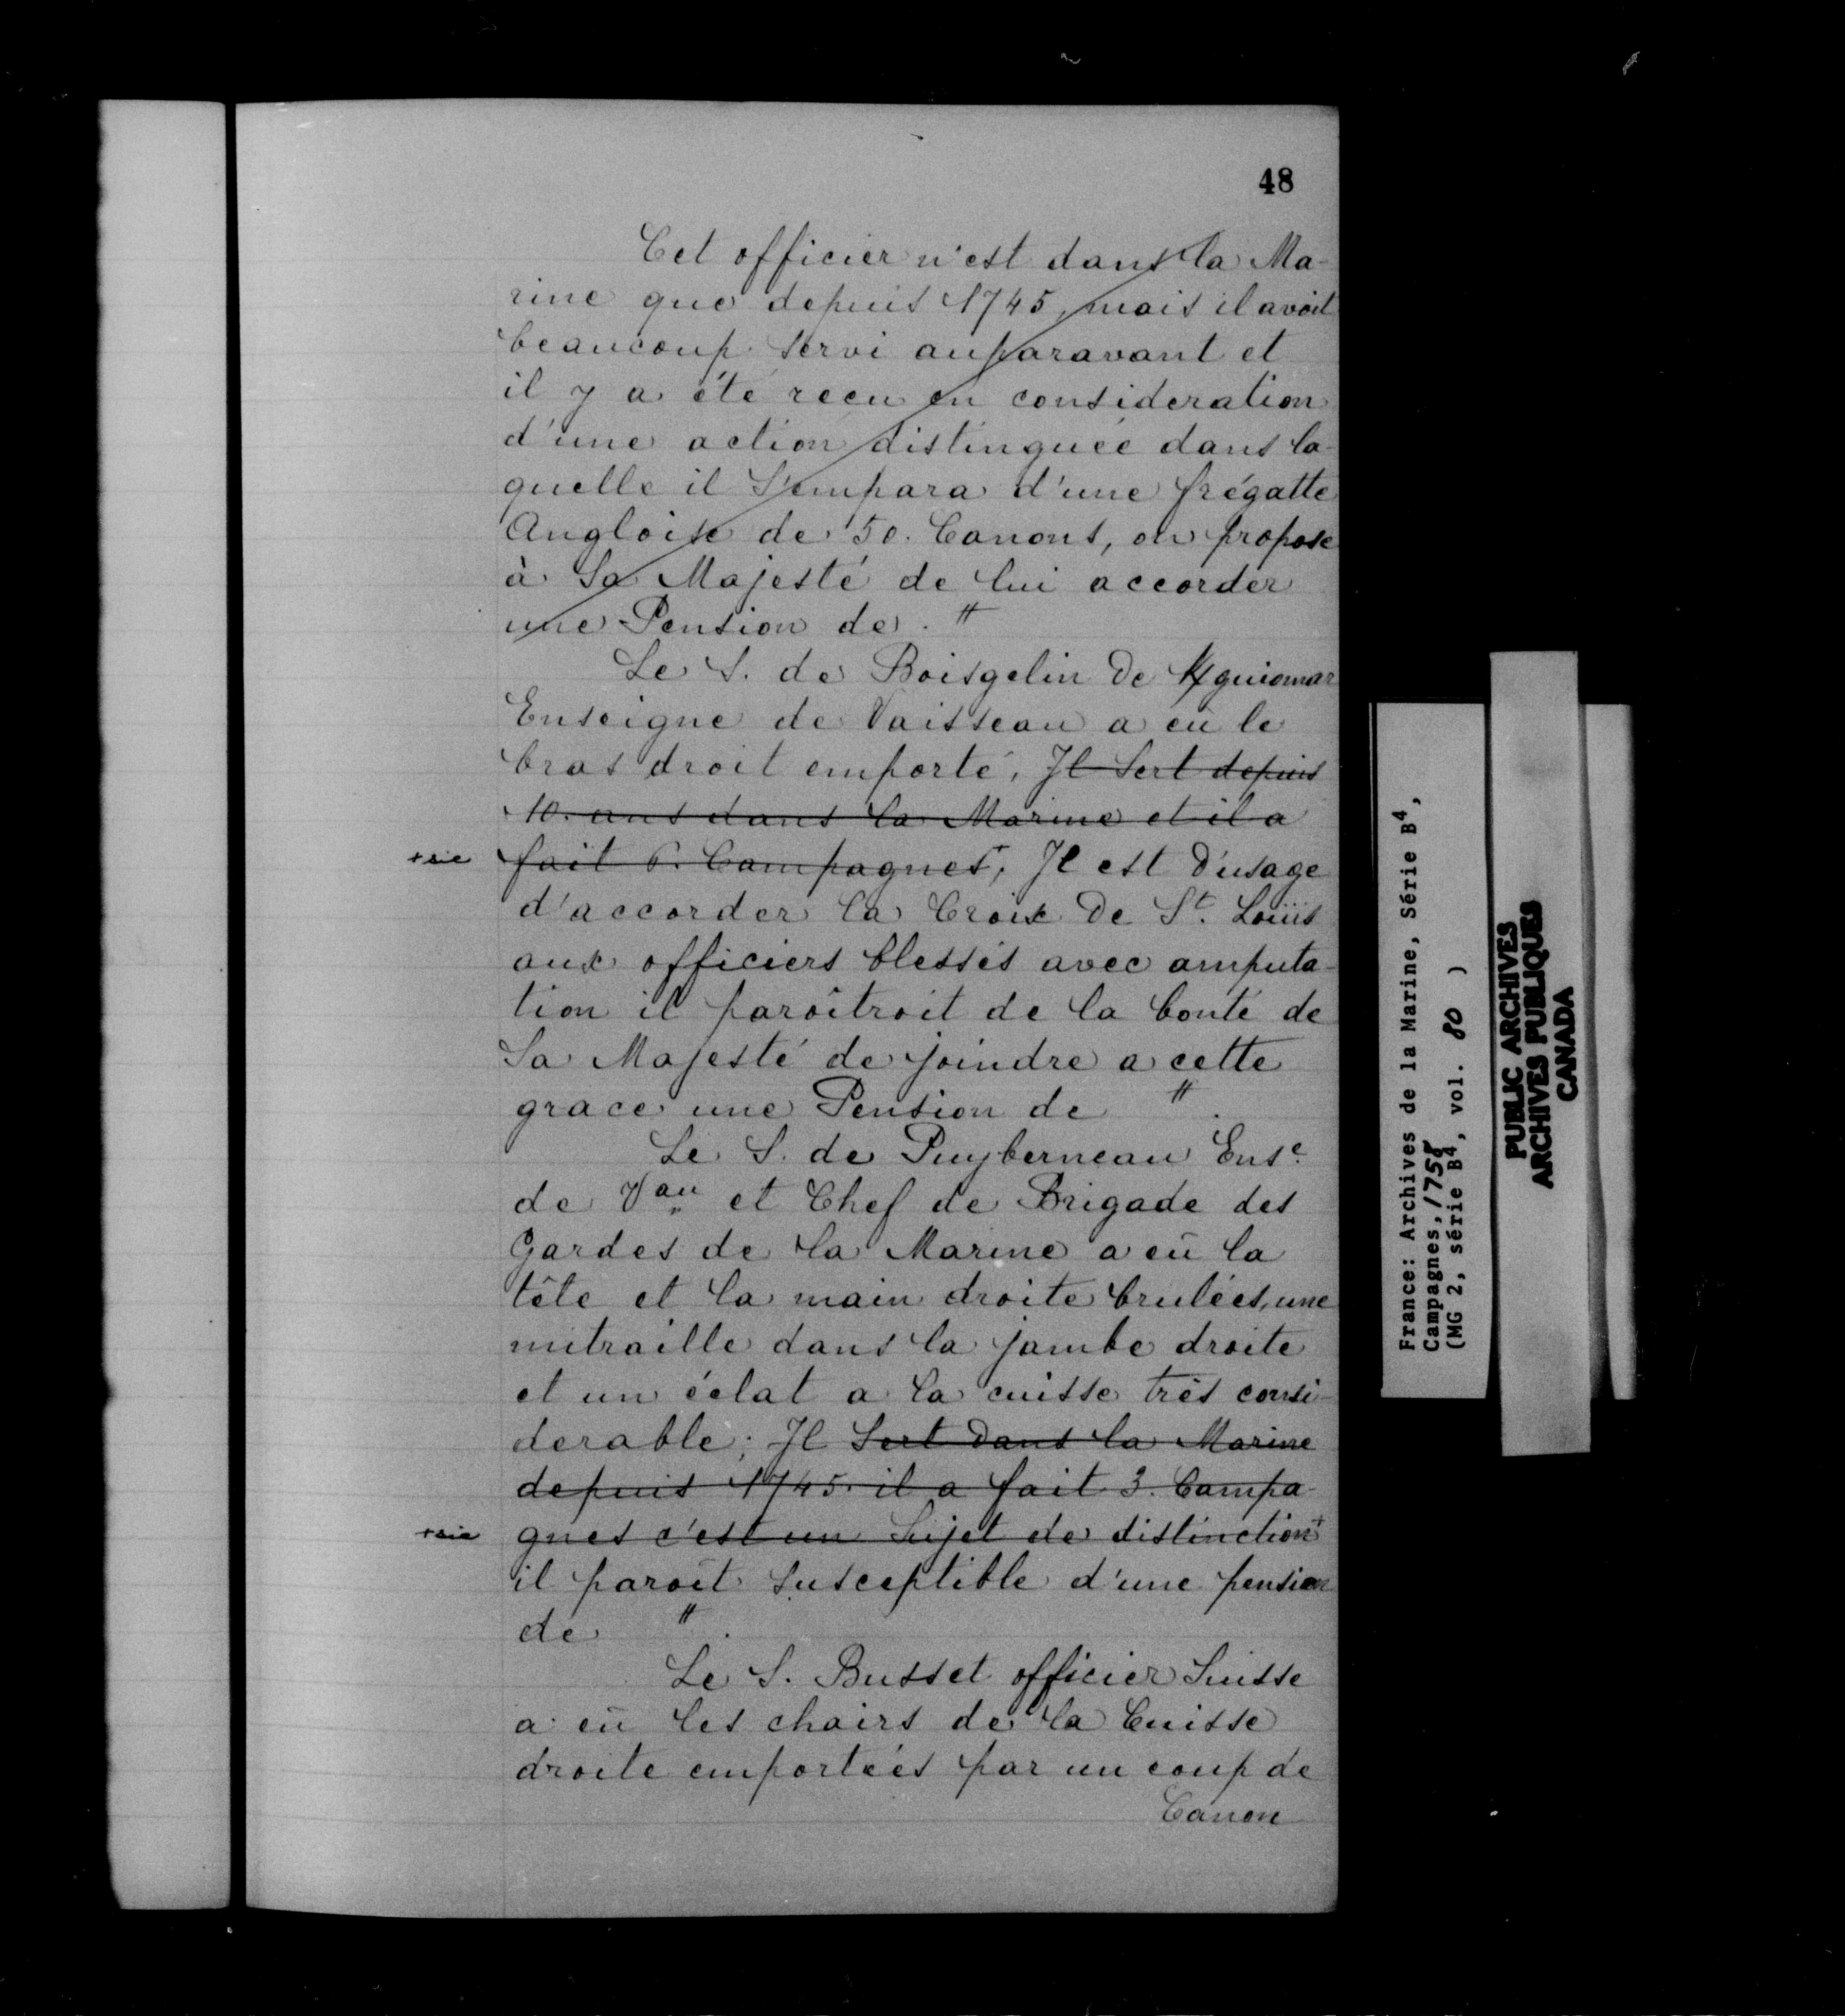 48
Cet officier n'est dans la Ma-
rine que depuis 1745, mais il avoit
beaucoup servi auparavant et
il y a été recu en consideration
d'une action distinguée dans la-
quelle il S'empara d'une frégatte
Angloise de 50. Canons, on propose
à Sa Majesté de lui accorder
une Pension de . ₶
Le S. de Boisgelin De Kguiomar
Enseigne de Vaisseau a eû le
bras droit emporté, Il Sert depuis
10. ans dans la Marine et il a
+ sic fait 6. Campagnes+, Il est D'usage
d'accorder la Croix De St. Loüis
aux officiers blessés avec amputa-
tion il paroîtroit de la bonté de
Sa Majesté de joindre a cette
grace une Pension de ₶.
Le S. de Puyberneau Ense.
de Vau et Chef de Brigade des
Gardes de la Marine a eû la
tête et la main droite brulées, une
mitraille dans la jambe droite
et un éclat a la cuisse très consi-
derable; Il Sert dans la Marine
depuis 1745. il a fait 3. Campa-
+ sic gnes c'est un Sujet de distinction+
il paroît Susceptible d'une pension
de ₶.
Le S. Busset officier Suisse
a eû les chairs de la Cuisse
droite emportées par un coup de
Canon
France: Archives de la Marine, Série B4,
Campagnes, 1758
(MG 2, série B4, vol. 80 )
PUBLIC ARCHIVES
ARCHIVES PUBLIQUES
CANADA